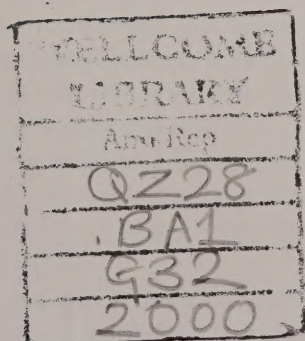 WELLCOME
LIBRARY
Ann Rep
QZ28
.BA1
G32
2000